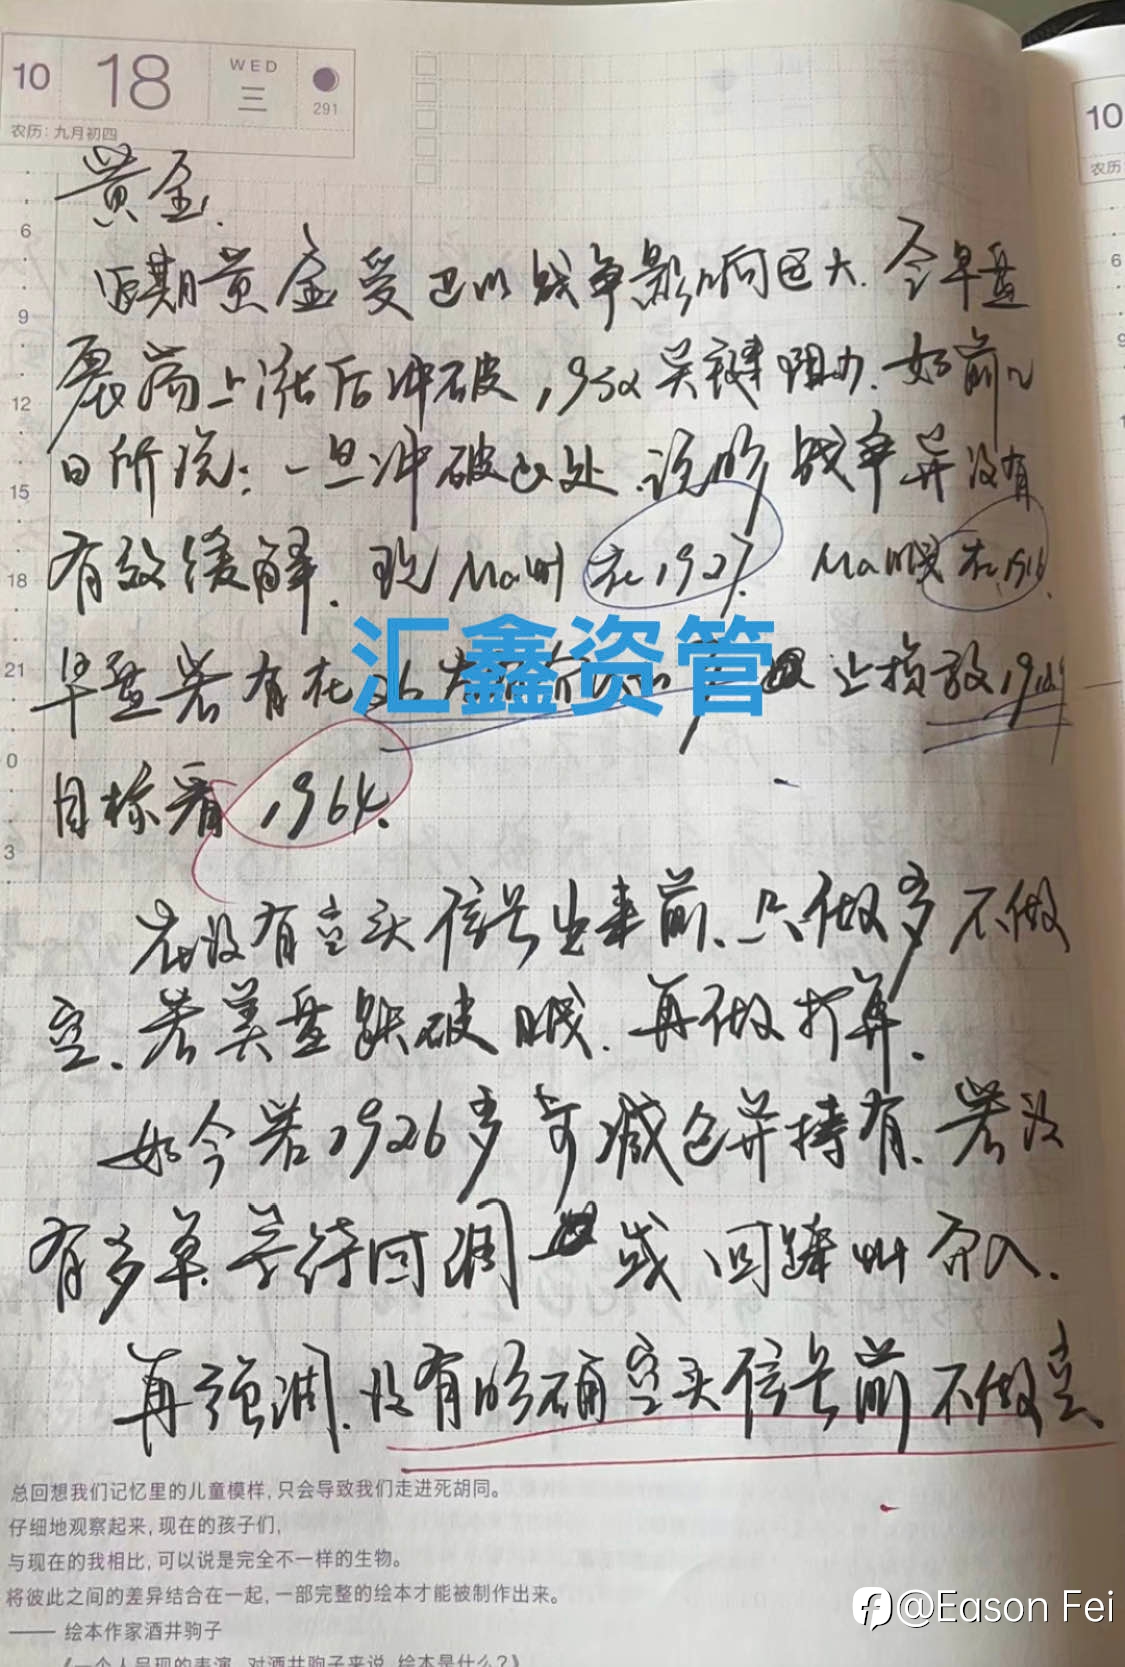 10
18
WED
三
291
农历：九月初四
10
农历
6
9
12
15
18
21
0
3
黄金.
近期黄金受巴以战争影响巨大.今早盘
震荡上涨后冲破,1932关键阻力.如前几
日所说:一旦冲破此处.说明战争并没有
有效缓解.现Ma 在1927. Ma 在1916.
早盘若有在26 止损放19
目标看1964.
在没有空头信号出来前、只做多不做
空、若美盘跌破 .再做打算.
如今若1926多可减仓并持有、若没
有多单.等待回调 或回踩 介入.
再强调、没有明确空头信号前不做空、
汇鑫资管
总回想我们记忆里的儿童模样，只会导致我们走进死胡同。
仔细地观察起来，现在的孩子们，
与现在的我相比，可以说是完全不一样的生物。
将彼此之间的差异结合在一起，一部完整的绘本才能被制作出来。
—— 绘本作家酒井驹子
《一个人呈现的表演 对酒井驹子来说 绘本是什么？》
@Eason Fei